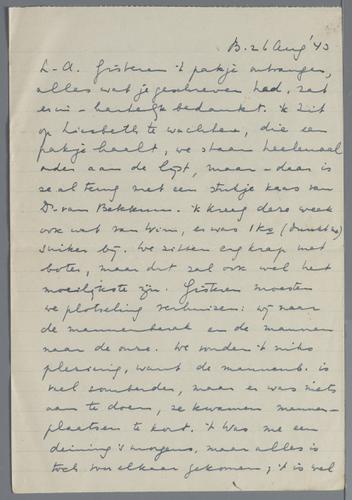 B. 26 Aug '43
L. A. Gisteren 't pakje ontvangen,
alles wat je geschreven had, zat
erin - hartelijk bedankt. Ik zit
op Liesbeth te wachten, die een
pakje haalt, we staan heelemaal
onder aan de lijst, maar - daar is
ze al terug met een stukje kaas van
Dr. van Bekkum. 'k kreeg deze week
ook wat van Wim, er was 1 kg
suiker bij. We zitten erg krap met
boter, maar dat zal ook wel het
moeilijkste zijn. Gisteren moesten
we plotseling verhuizen: wij naar
de mannenbarak en de mannen
naar de onze. We vonden 't niks
plezierig, want de mannenb. is
veel zonder, maar er was niets
aan te doen, ze kwamen mannen-
plaatsen te kort. 't Was me een
deining 's morgens, maar alles is
toch van elkaar gekomen, 't is wel